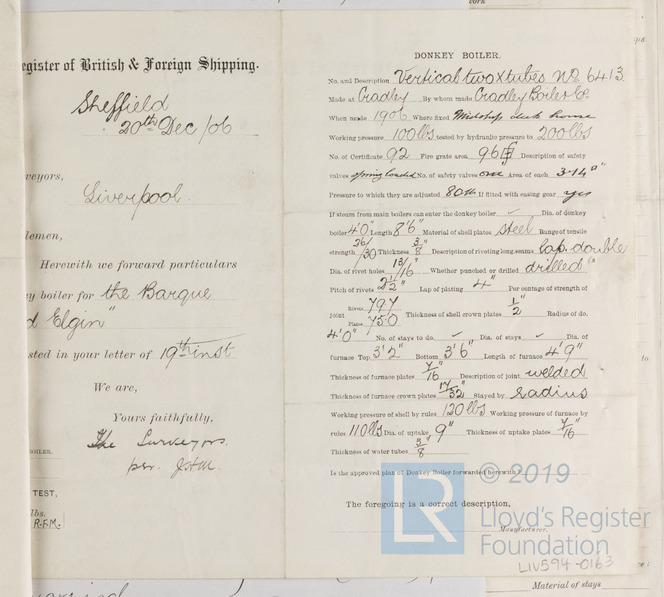 egister of British & Foreign Shipping.
Sheffield
20th Dec /06
veyors,
Liverpool.
lemen,
Herewith we forward particulars
y boiler for the Barque
d Elgin"
sted in your letter of 19th inst
We are,
Yours faithfully,
The Surveyors.
per. J.H.M.
BOILER.
TEST,
lbs.
R.F.M.
DONKEY BOILER.
No. and Description Vertical two x tubes No. 6413
Made at Cradley By whom made Cradley Boiler Co
When made 1906 Where fixed Midship deck house
Working pressure 100 lbs tested by hydraulic pressure to 200 lbs
No. of Certificate 92 Fire grate area 9.6 Description of safety
valves spring loaded No. of safety valves one Area of each 3.14"
Pressure to which they are adjusted 80 lb If fitted with easing gear yes
If steam from main boilers can enter the donkey boiler Dia. of donkey
boiler 4'0" Length 8'6" Material of shell plates Steel Range of tensile
strength 26/30 Thickness 3/8" Description of riveting long. seams lap double
Dia. of rivet holes 13/16" Whether punched or drilled drilled
Pitch of rivets 2 1/2" Lap of plating 4" Per centage of strength of
joint Rivets 79.7 Plate 75.0 Thickness of shell crown plates 1/2" Radius of do.
4'0" No. of stays to do. Dia. of stays Dia. of
furnace Top 3'2" Bottom 3'6" Length of furnace 4'9"
Thickness of furnace plates 7/16" Description of joint welded
Thickness of furnace crown plates 17/32" Stayed by radius
Working pressure of shell by rules 120 lbs Working pressure of furnace by
rules 110 lbs Dia. of uptake 9" Thickness of uptake plates 7/16"
Thickness of water tubes 3/8"
Is the approved plan of Donkey Boiler forwarded herewith?
The foregoing is a correct description,
Manufacturer.
© 2019
LR
Lloyd's Register
Foundation
LIV594-0163
Material of stays